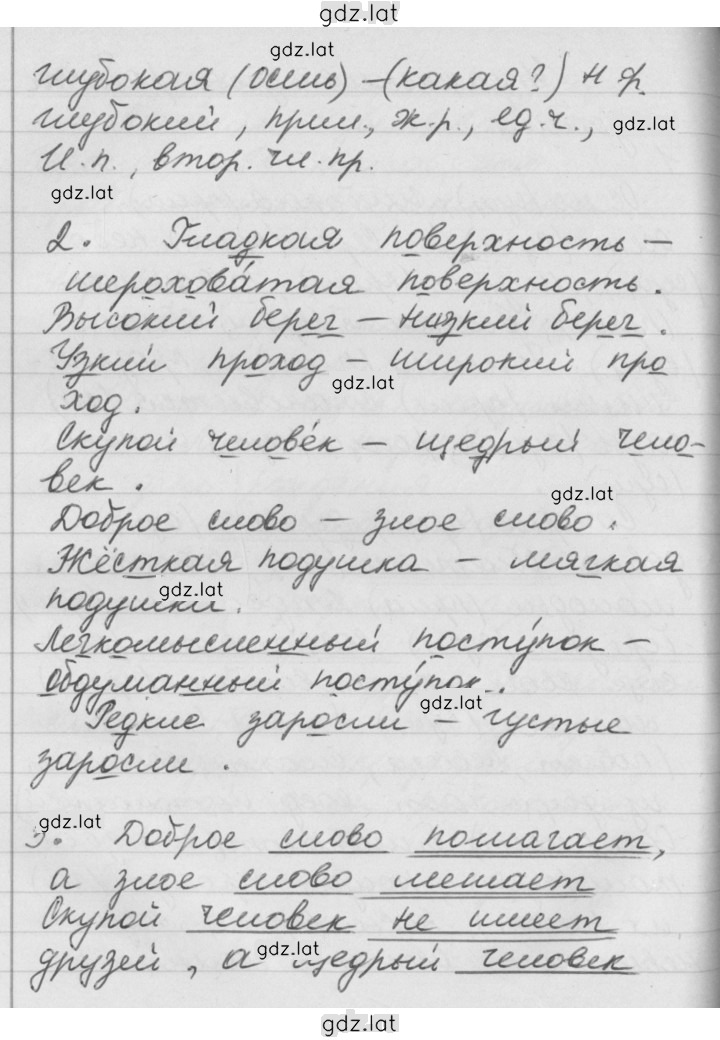 gdz.lat
gdz.lat
глубокая (осень) – (какая?) н.ф.
глубокий, прил., ж.р., ед.ч., gdz.lat
И.п., втор. чл. пр.
gdz.lat
2. Гладкая поверхность –
шерохова́тая поверхность.
Высокий берег – низкий берег.
Узкий проход – широкий про
gdz.lat
ход.
Скупой челове́к – щедрый чело-
век.
gdz.lat
Доброе слово – злое слово.
Жёсткая подушка – мягкая
gdz.lat
подушки.
Легкомысленный посту́пок –
обдуманный посту́пок.
gdz.lat
Редкие заросли – густые
заросли.
gdz.lat
3. Доброе слово помагает,
а злое слово мешает
Скупой человек не имеет
gdz.lat
друзей, а щедрый человек
gdz.lat